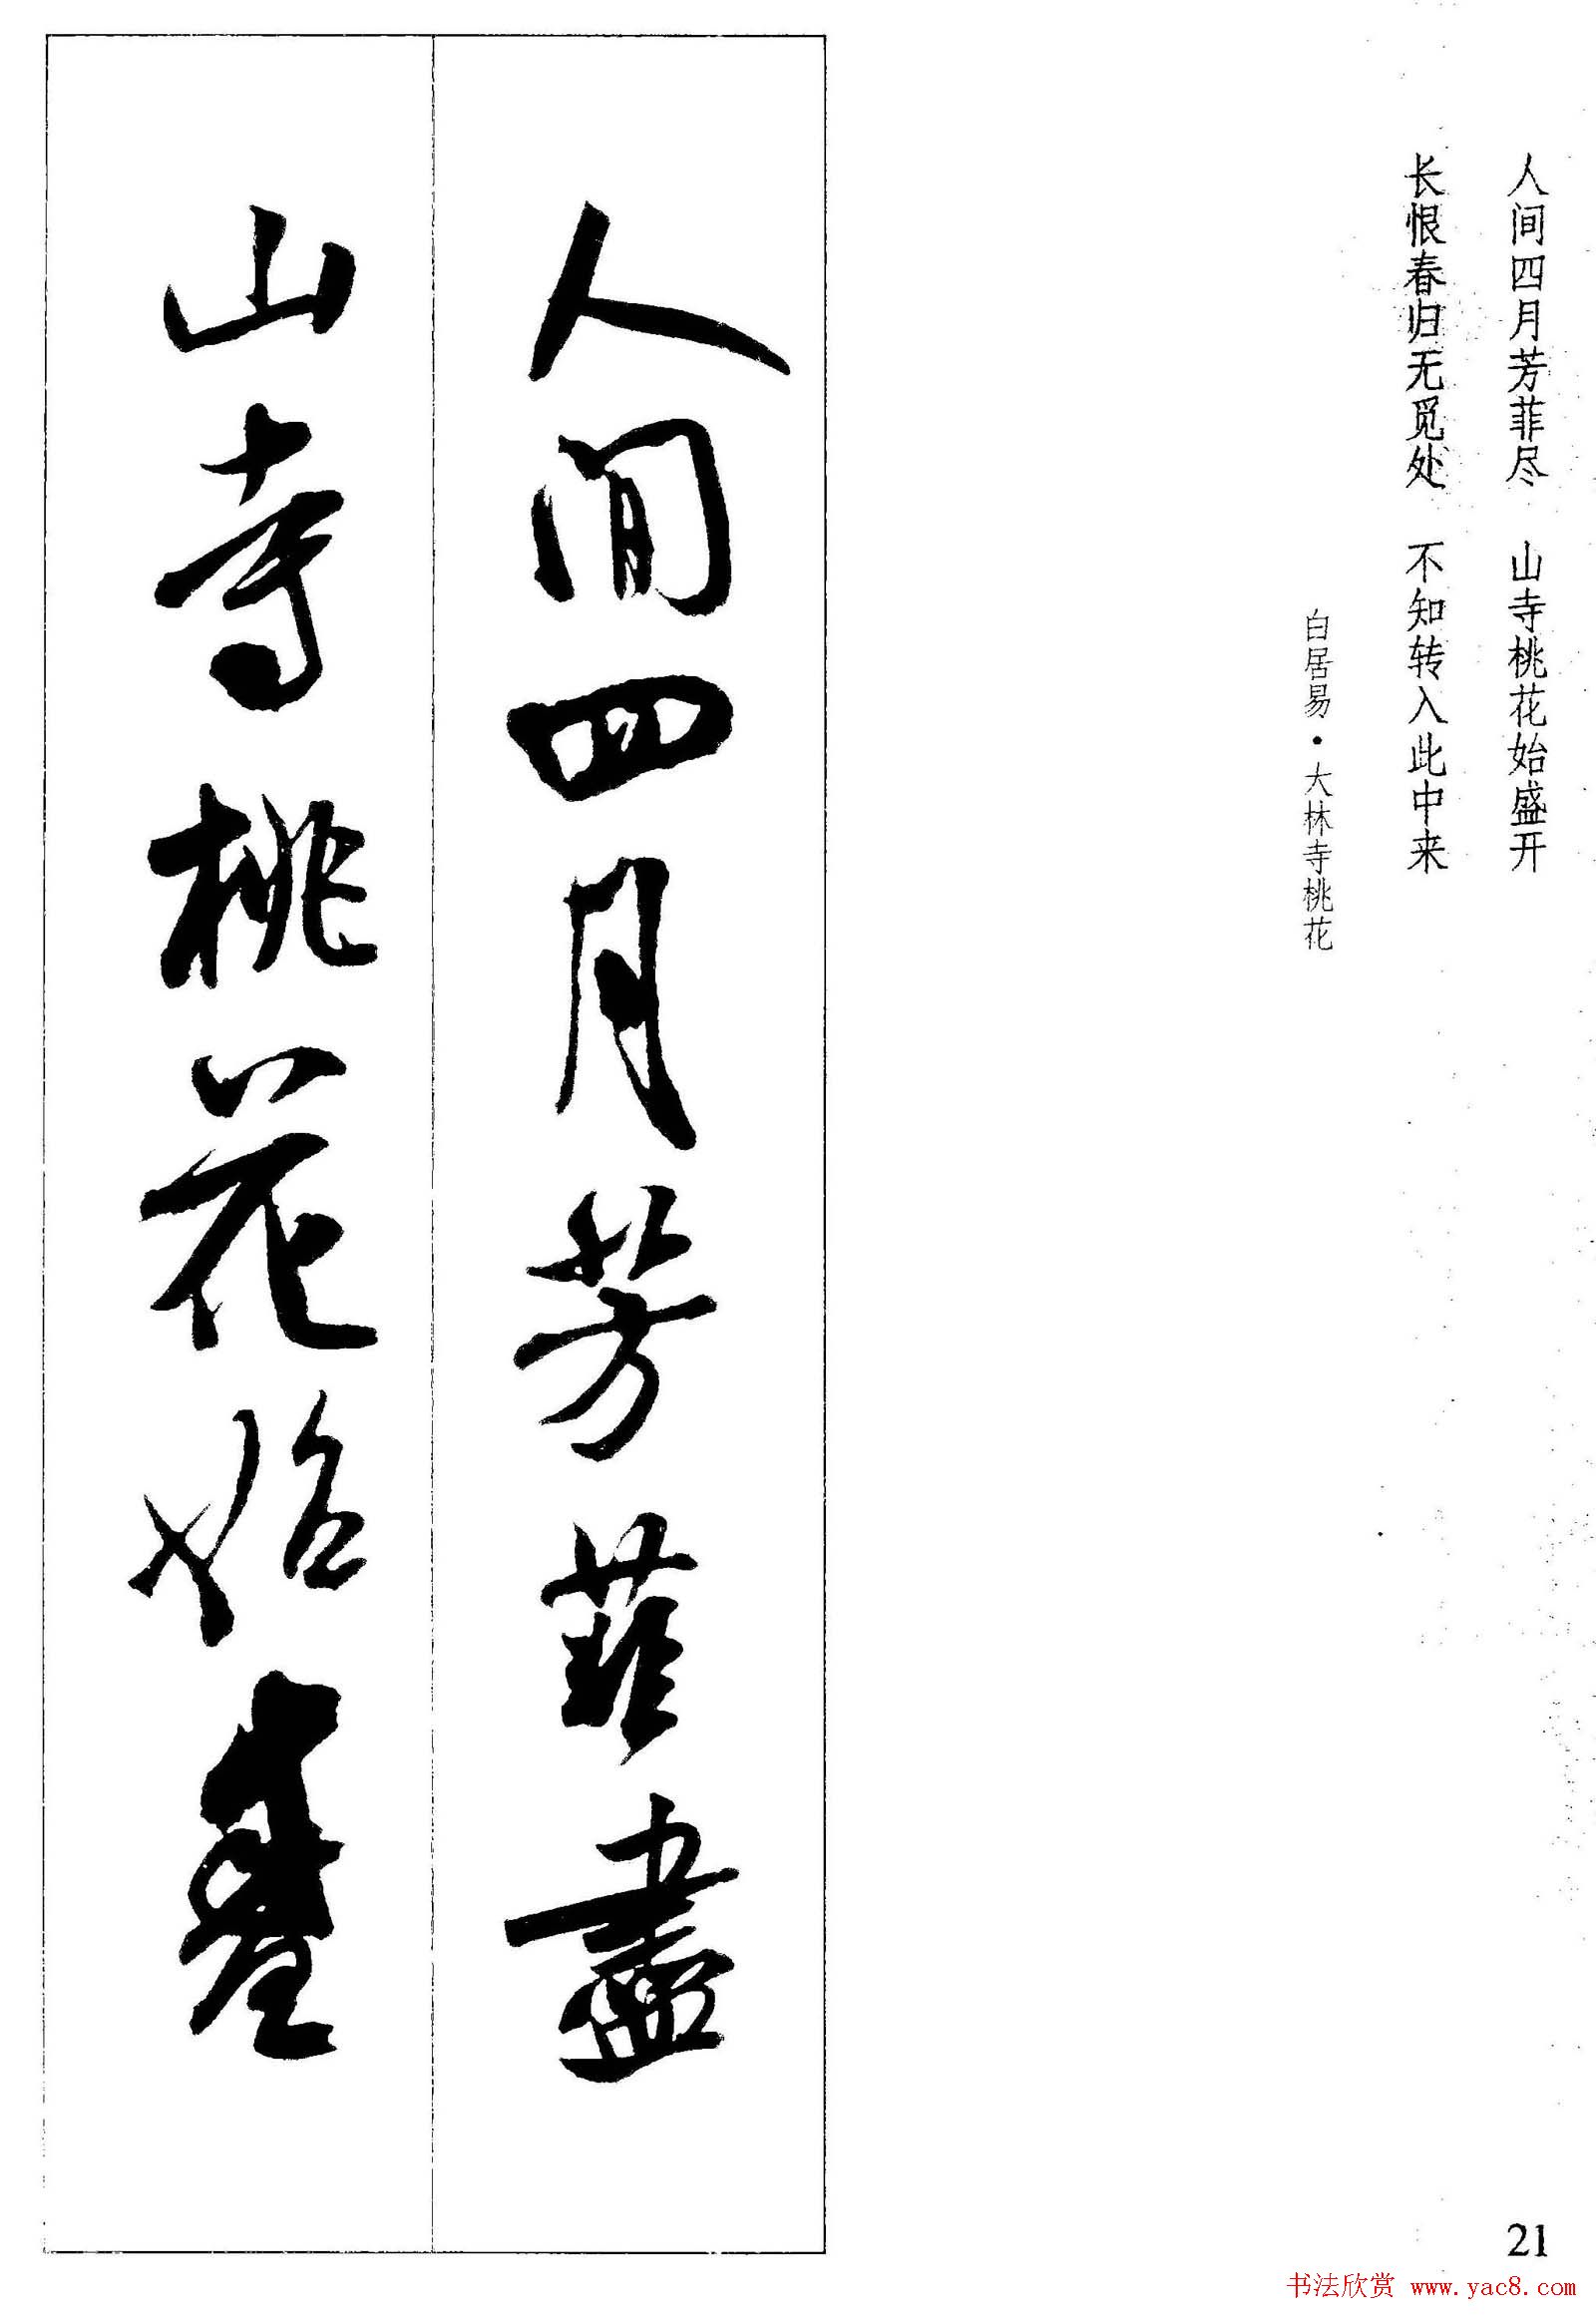 人间四月芳菲尽 山寺桃花始盛开
长恨春归无觅处 不知转入此中来
白居易·大林寺桃花
人間四月芳菲盡
山寺桃花始盛
21
书法欣赏 www.yac8.com